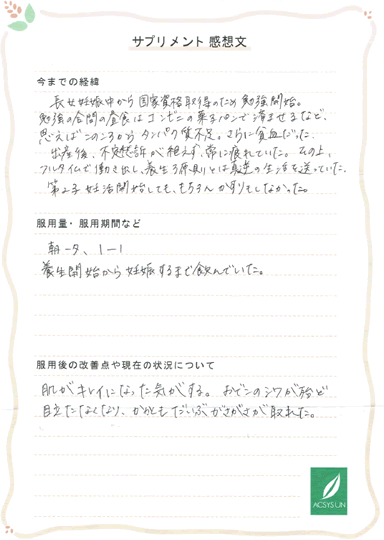 サプリメント 感想文
今までの経緯
長女妊娠中から国家資格取得のため勉強開始。
勉強の合間の昼食はコンビニの菓子パンで済ませるなど、
思えばこのころからタンパク質不足。さらに貧血だった。
出産後、不定愁訴が絶えず、常に疲れていた。その上、
フルタイムで働き出し、養生3原則とは真逆の生活を送っていた。
第2子妊活開始しても、もちろんかすりもしなかった。
服用量・服用期間など
朝-夕、1-1
養生開始から妊娠するまで飲んでいた。
服用後の改善点や現在の状況について
肌がキレイになった気がする。おでこのシワが殆ど
目立たなくなり、かかともだいぶがさがさが取れた。
ACSYSUN